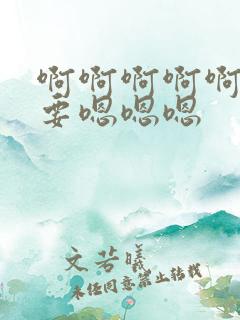 啊啊啊啊啊
要嗯嗯嗯
文芳曦
未经同意禁止转载